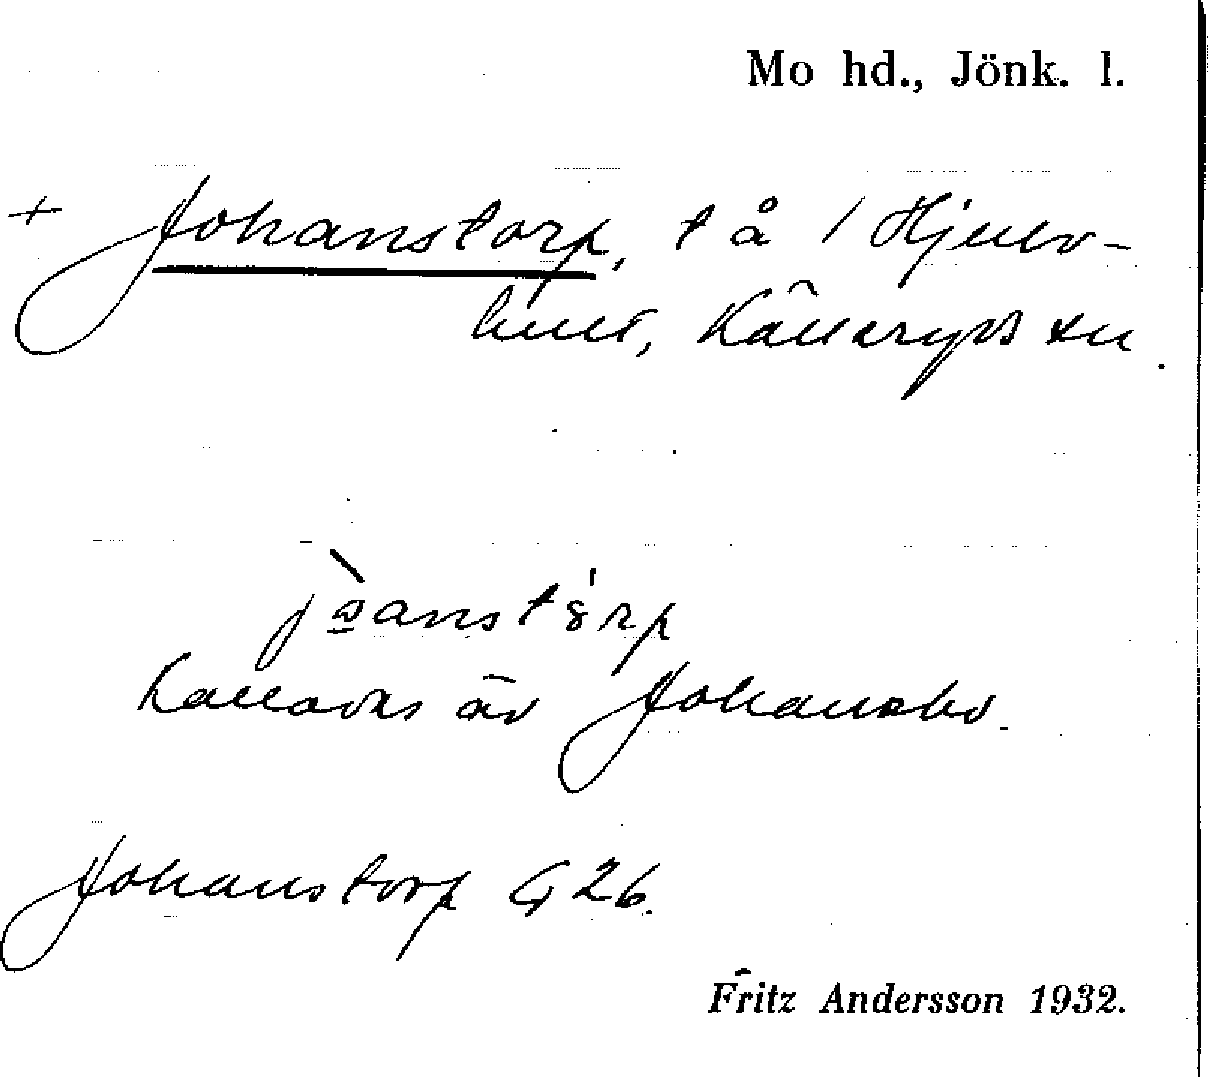 Mo hd., Jönk. l.
+ Johanstorp, t å / Hjulv-
hult, Källeryds sn.
Kallades äv Johansbo.
Johanstorp G 26.
Fritz Andersson 1932.